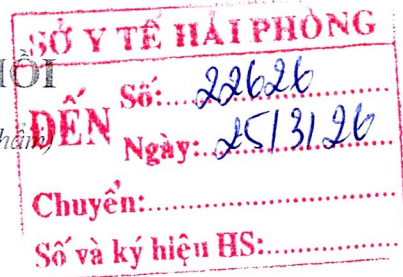 SỞ Y TẾ HẢI PHÒNG
ĐẾN
Số: 22626
Ngày: 25/3/26
Chuyển:
Số và ký hiệu HS: